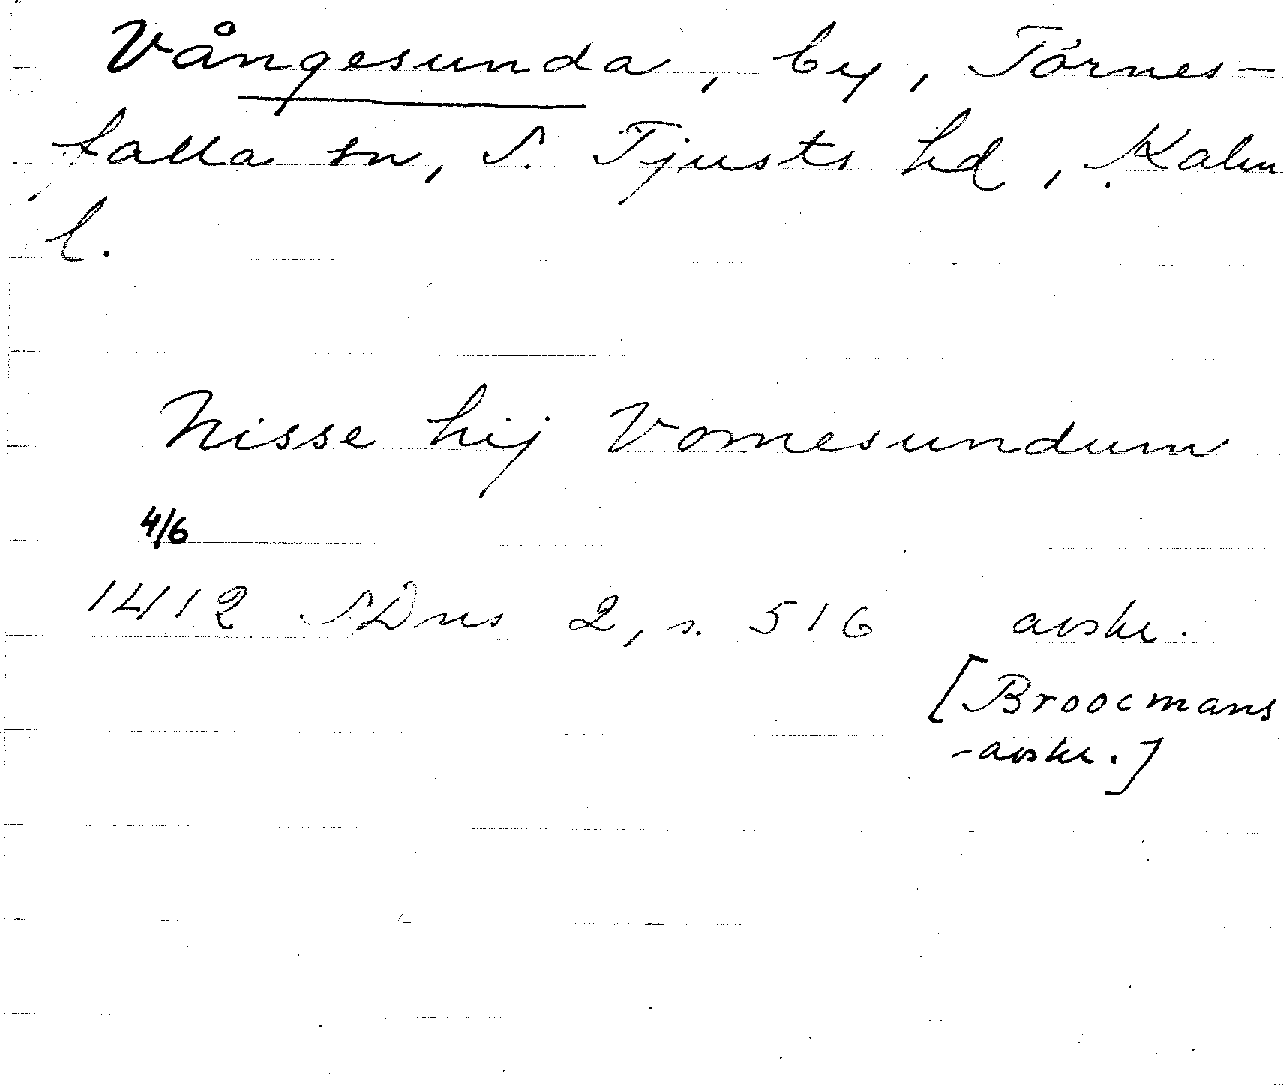 Vångesunda, by, Törnes-
falla sn, S. Tjusts hd, Kalm
l.
Nisse hij Vomesundum
4/6
1412 SDns 2, s. 516 avskr.
[Broocmans
-avskr.]